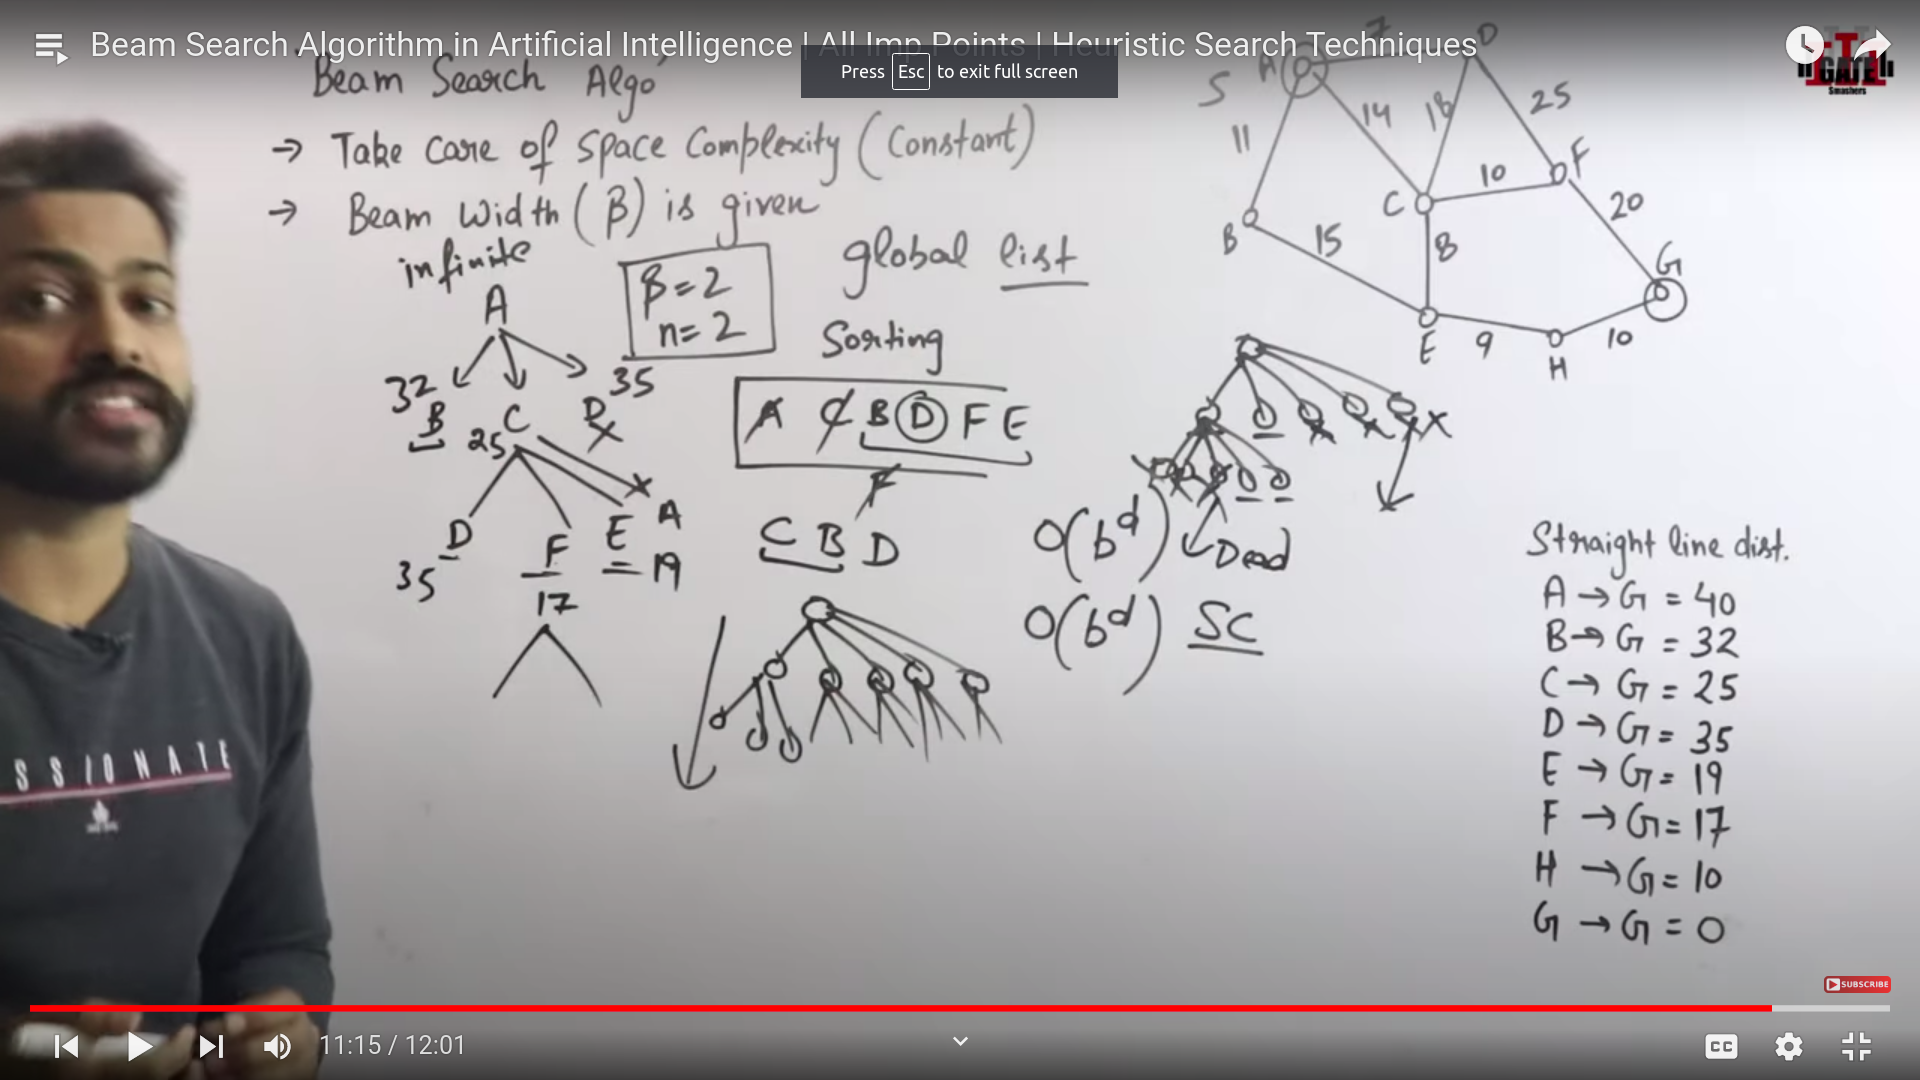 Beam Search Algorithm in Artificial Intelligence | All Imp Points | Heuristic Search Techniques
Press Esc to exit full screen
GATE
Smashers
"Beam Search Algo"
→ Take care of space complexity (Constant)
→ Beam width (β) is given
infinite
β = 2
n = 2
global list
Sorting
A
32
35
B
25 C
D
D
F
E
A
35
19
17
A C B D F E
F
C B D
O(b^d)
Dead
O(b^d) SC
S
A
7
D
11
14
18
25
F
10
C
20
B
15
8
G
E
9
H
10
Straight line dist.
A → G = 40
B → G = 32
C → G = 25
D → G = 35
E → G = 19
F → G = 17
H → G = 10
G → G = 0
SSIONATE
SUBSCRIBE
11:15 / 12:01
CC